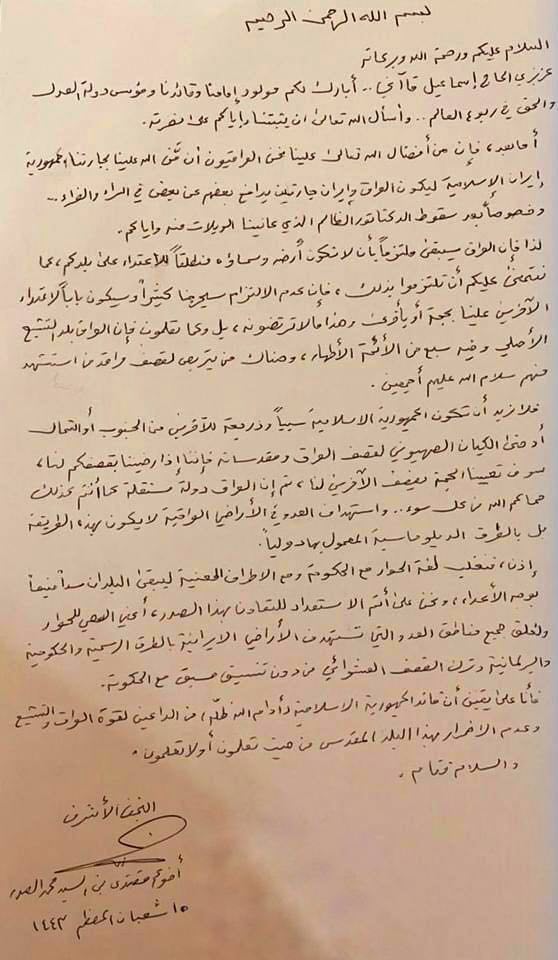 بسم الله الرحمن الرحيم
السلام عليكم ورحمة الله وبركاته
عزيزي الحاج إسماعيل قاآني .. أبارك لكم مولود إمامنا وقائدنا ومؤسس دولة العدل
والحق في ربوع العالم .. وأسأل الله تعالى ان يثبتنا وإياكم على نصرته.
أما بعد، فإن من أفضال الله تعالى علينا نحن العراقيون أن مَنَّ الله علينا بجارتنا الجمهورية
إيران الاسلامية ليكون العراق وإيران جارتين يدافع بعضهم عن بعض في السراء والضراء ..
وخصوصاً بعد سقوط الدكتاتور الظالم الذي عانينا الويلات منه وإياكم.
لذا فإن العراق سيبقى ملتزماً بأن لا تكون أرضه وسماؤه منطلقاً للإعتداء على بلدكم، كما
نتمنى عليكم أن تلتزموا بذلك، فإن عدم الالتزام سيحرجنا كثيراً وسيكون باباً لاعتداء
الآخرين علينا بحجة أو بأخرى وهذا ما لا ترتضونه، بل وكما تعلمون فإن العراق بلد التشيع
الأصلي وفيه سبع من الأئمة الأطهار، وهناك من يتربص لقصف مراقد من استشهد
منهم سلام الله عليهم أجمعين.
فلا نريد أن تكون الجمهورية الاسلامية سبباً وذريعة للآخرين من الجنوب أو الشمال
أو حتى الكيان الصهيوني لقصف العراق ومقدساته فإننا إذا رضينا بقصفكم لنا،
سوف تعيينا الحجة بقصف الآخرين لنا، ثم إن العراق دولة مستقلة كما أنتم كذلك
حماكم الله من كل سوء .. واستهداف العدو في الأراضي العراقية لا يكون بهذه الطريقة
بل بالطرق الديلوماسية المعمول بها دولياً.
إذن، فنغلب لغة الحوار مع الحكومة ومع الاطراف المعنية ليبقى البلدان سداً منيعاً
بوجه الأعداء، ونحن على أتم الاستعداد للتعاون بهذا الصدد، أعني السعي للحوار
ولغلق جميع مناطق العدو التي تستهدف الأراضي الايرانية بالطرق الرسمية والحكومية
والبرلمانية وترك القصف العشوائي من دون تنسيق مسبق مع الحكومة.
فأنا على يقين أن قائد الجمهورية الاسلامية (أدام الله ظله) من الداعين لقوة العراق والتشيع
وعدم الاضرار بهذا البلد المقدس من حيث تعلمون أو لا تعلمون.
والسلام ختام.
النجف الأشرف
أخوكم مقتدى بن السيد محمد الصدر
١٥ شعبان المعظم ١٤٤٣